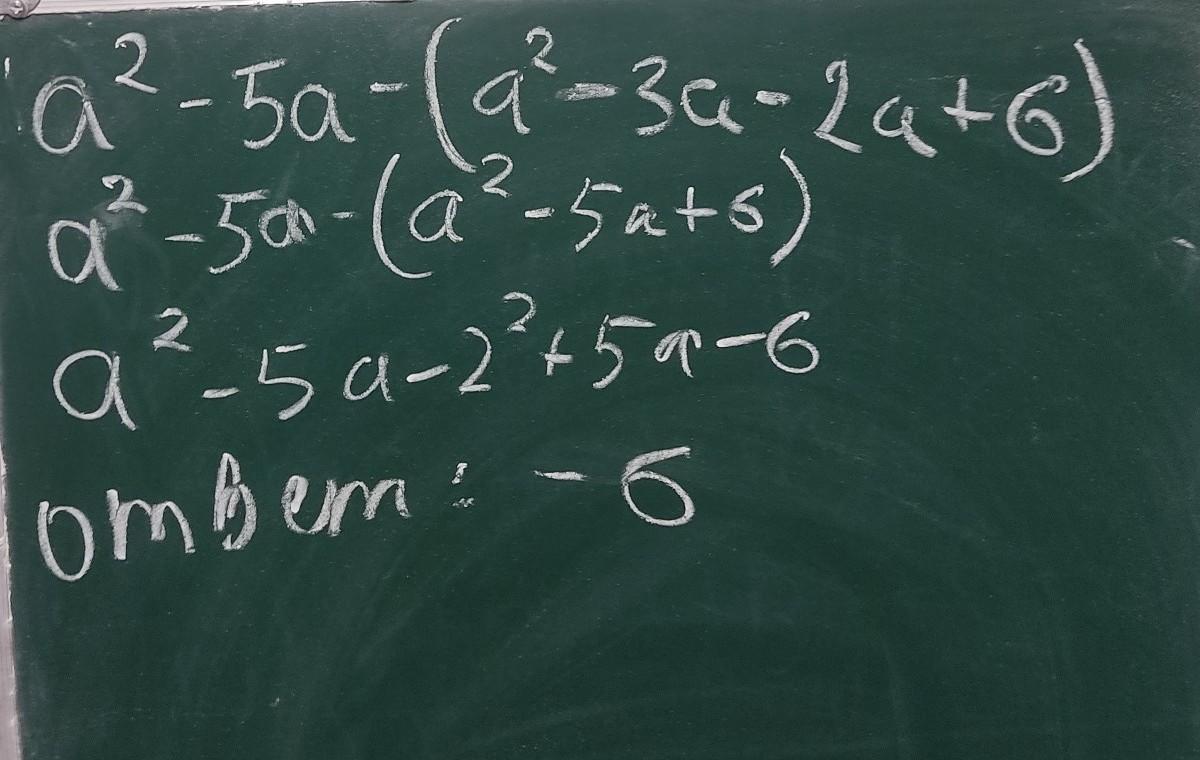 a² - 5a - (a² - 3a - 2a + 6)
a² - 5a - (a² - 5a + 6)
a² - 5a - 2² + 5a - 6
ответ: - 6